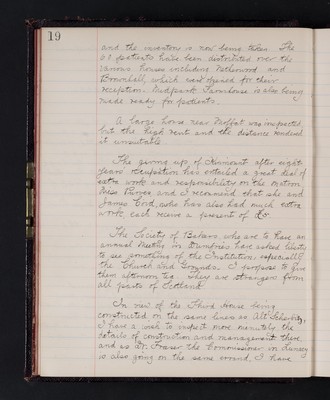 19
and the inventory is now being taken. The
patients have been distributed over the
various houses including Netherwood and
Brownhall, which were opened for their
reception. Midpark Farmhouse is also being
made ready for patients.
A large house near Moffat was inspected,
but the high rent and the distance rendered
it unsuitable.
The giving up of after eight
years occupation has entailed a great deal of
extra work and responsibility on the Matron
Miss and I recommend that she and
James who has also had much extra
work, each receive a present of £5.
The Society of who are to have an
annual Meeting in Dumfries have asked liberty
to see something of the Institution, especially
the Church and Grounds. I propose to give
them afternoon tea. They are strangers from
all parts of Scotland.
In view of the Third House being
constructed on the same lines as Alt Scherbitz,
I have a wish to inspect more minutely the
details of construction and management there,
and as Dr. Fraser the Commissioner in Lunacy
is also going on the same errand, I have